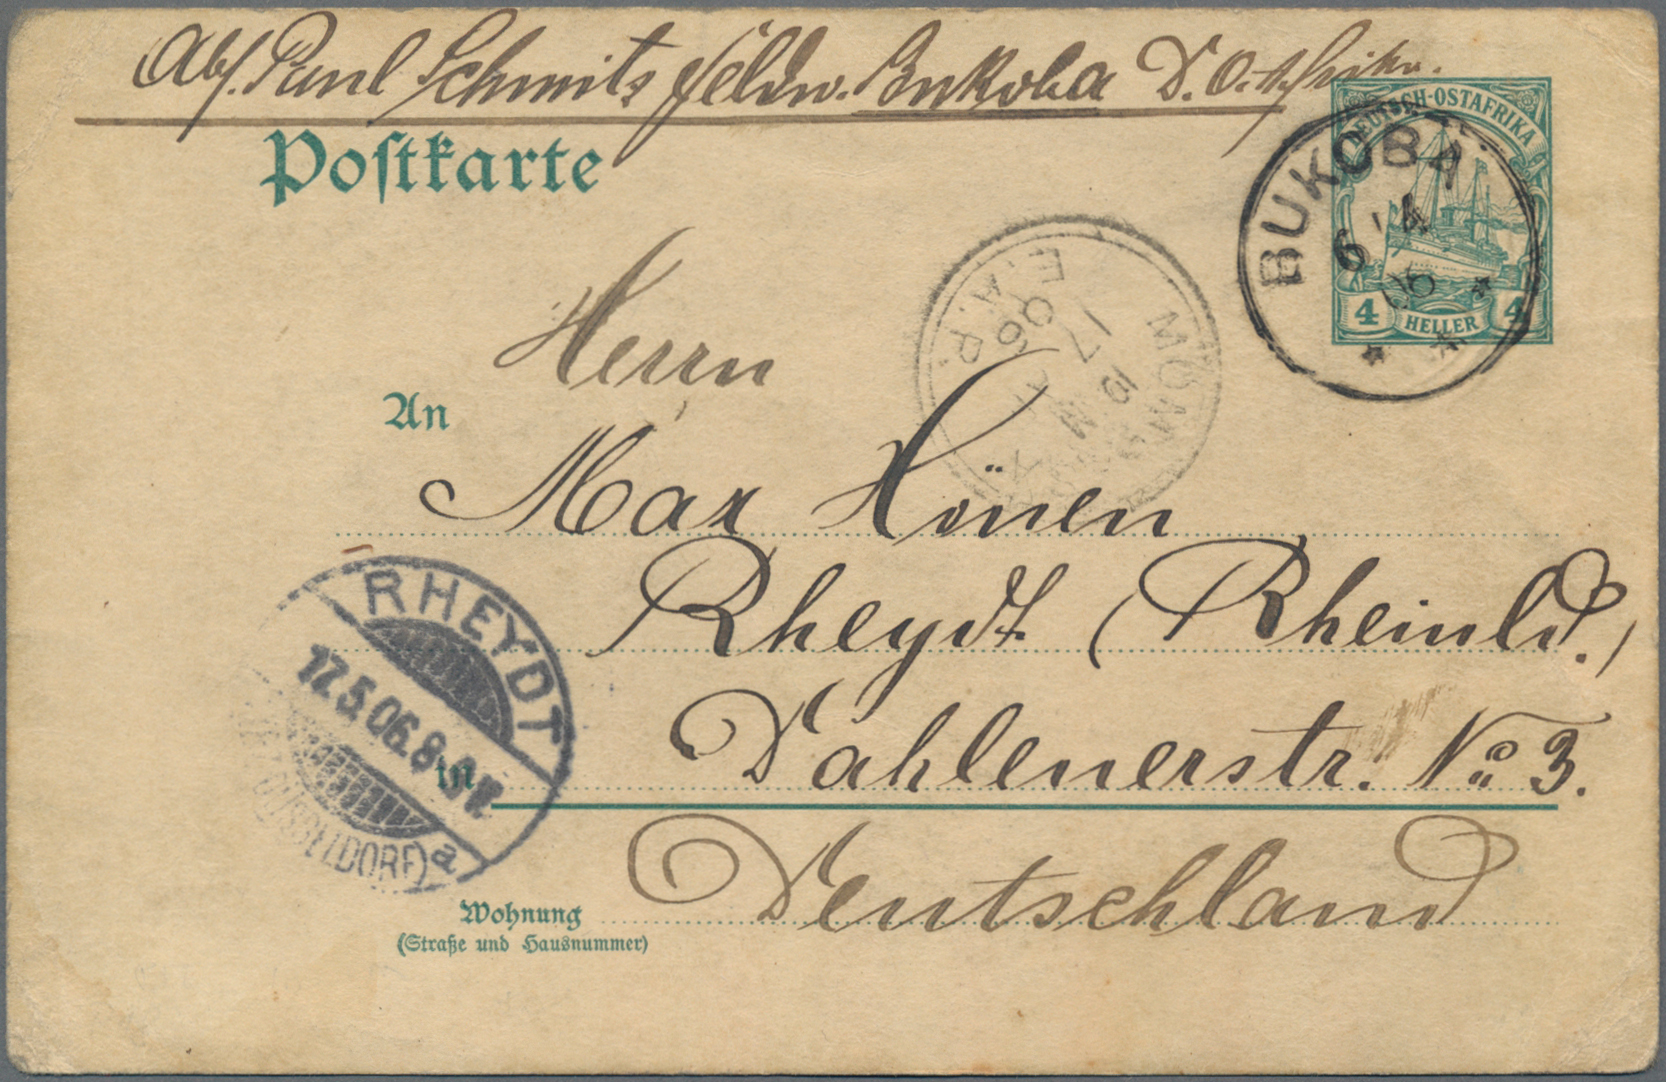 Abs. Paul Schmitz Feldw. Bukoba D. O.-Afrika.
Postkarte
DEUTSCH-OSTAFRIKA
4 HELLER 4
BUKOBA
6/4
06
MOMBASA
17
06
E.A.P.
Herrn
An
Max Hönen
Rheydt (Rheinld.)
Dahlenerstr. No 3.
in
Deutschland
RHEYDT
17.5.06.8-9V.
(DÜSSELDORF) a
Wohnung
(Straße und Hausnummer)